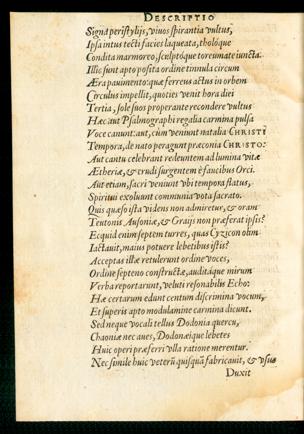 DESCRIPTIO
Signa peristylijs, viuos spirantia vultus,
Ipsa intus tecti facies laqueata, tholóque
Condita marmoreo, sculptóque toreumate iuncta.
Illic sunt apto posita ordine tinnula circum
Æra pauimento: quæ ferreus actus in orbem
Circulus impellit, quoties venit hora diei
Tertia, sole suos properante recondere vultus
Hæc aut Psalmographi regalia carmina pulsa
Voce canunt: aut, cùm veniunt natalia CHRISTI
Tempora, de nato peragunt præconia CHRISTO:
Aut cantu celebrant redeuntem ad lumina vitæ
Ætheriæ, & crudi surgentem è faucibus Orci.
Aut etiam, sacri veniunt vbi tempora flatus,
Spiritui exoluunt communia vota sacrato.
Quis quæso ista videns non admiretur, & oram
Teutonis Ausoniæ, & Graijs non præferat ipsis?
Ecquid enim septem turres, quas Cyzicon olim
Iactauit, maius potuere lebetibus istis?
Acceptas illæ retulerunt ordine voces,
Ordine septeno constructæ, auditáque mirum
Verba reportarunt, veluti resonabilis Echo:
Hæ certarum edunt centum discrimina vocum,
Et superis apto modulamine carmina dicunt.
Sed neque vocali tellus Dodonia quercu,
Chaoniæ nec aues, Dodonæique lebetes
Huic operi præferri vlla ratione merentur.
Nec simile huic veterũ quisquã fabricauit, & vsus
Duxit